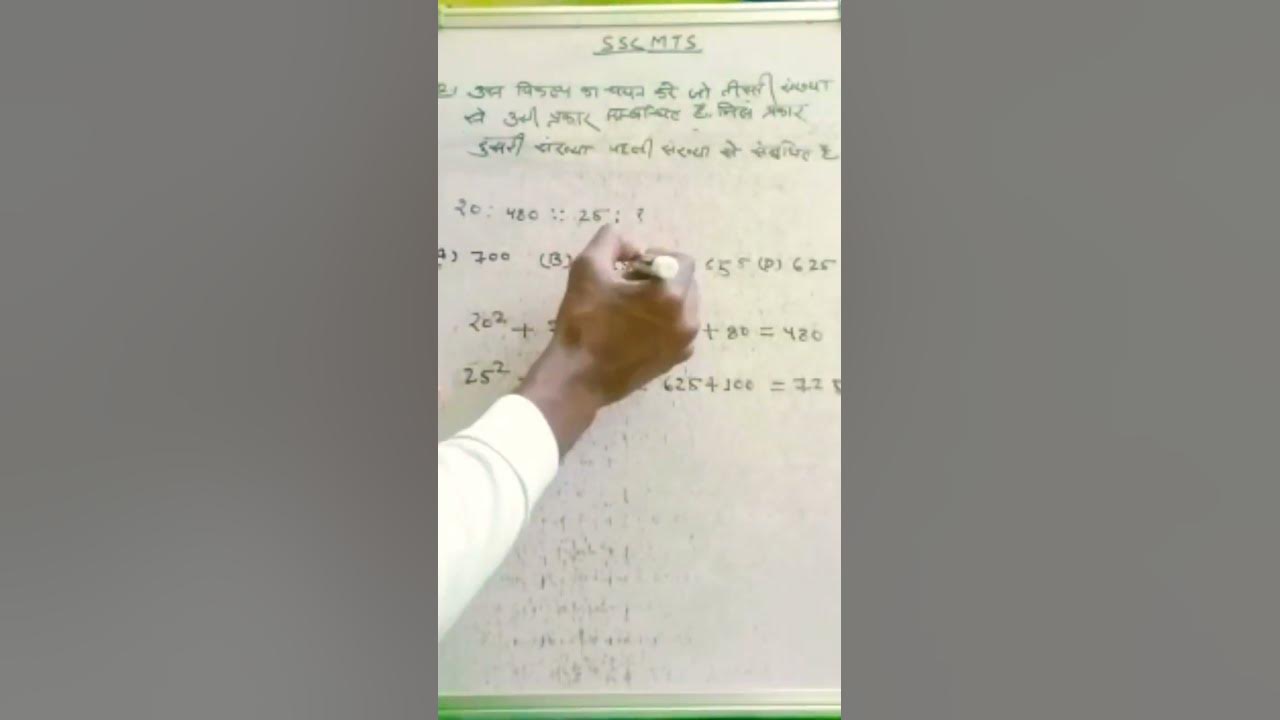 SSC MTS
उस विकल्प का चयन करे जो तीसरी संख्या
से उसी प्रकार सम्बन्धित है, जिस प्रकार
दुसरी संख्या पहली संख्या से संबंधित है
20 : 480 :: 25 : ?
A) 700 (B) (D) 625
20² + + 80 = 480
25² 625 + 100 = 725